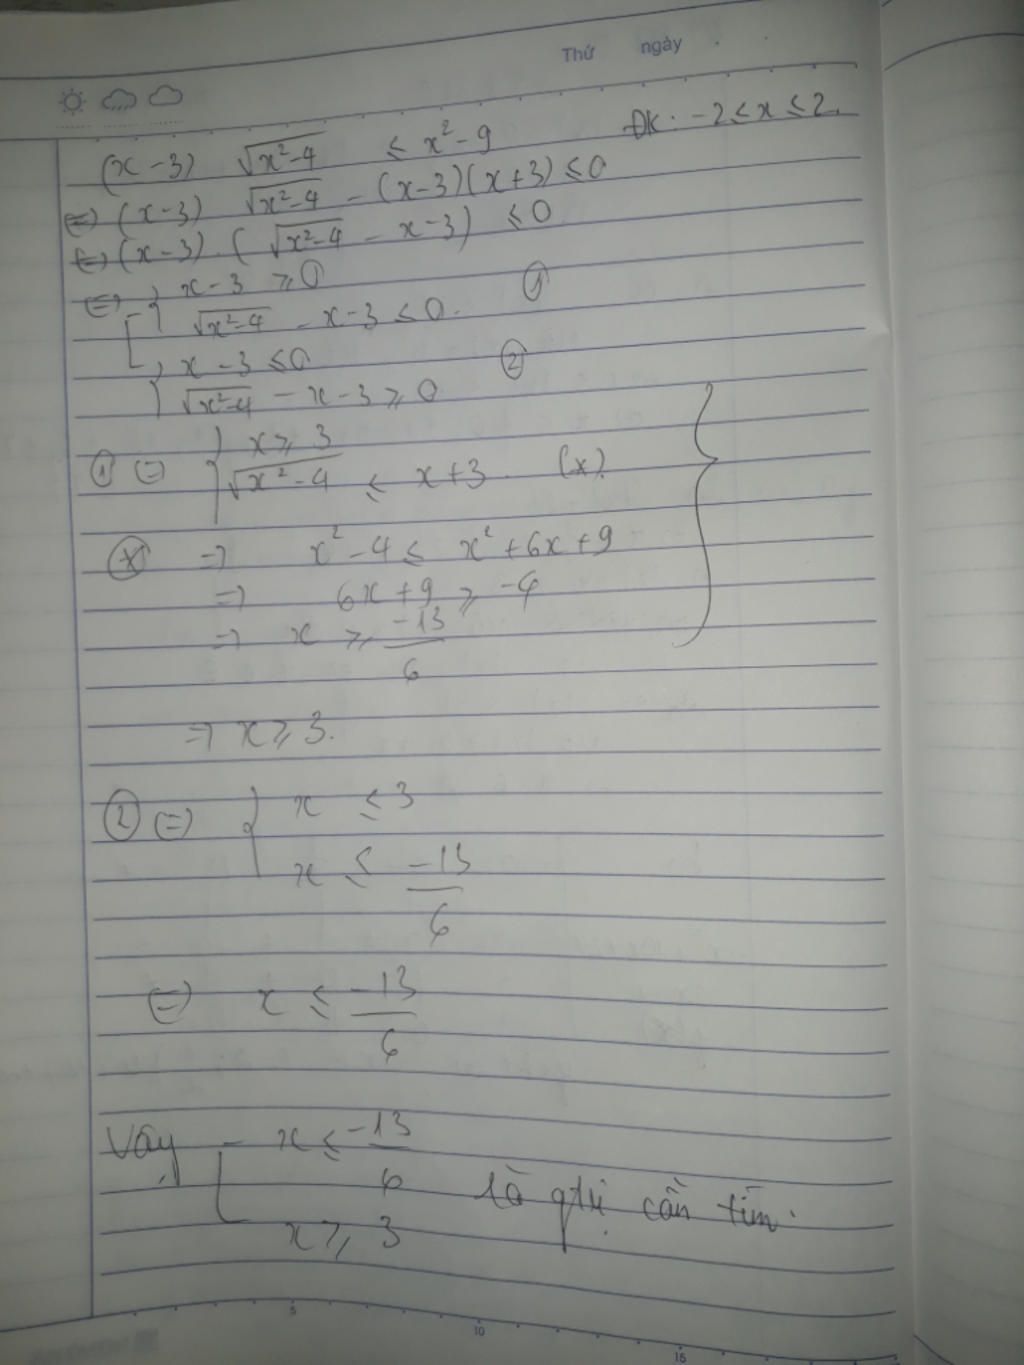 Thứ ngày
(x-3) √x²-4 ≤ x²-9 ĐK: -2≤x≤2.
(=) (x-3) √x²-4 - (x-3)(x+3) ≤0
(=) (x-3).(√x²-4 - x-3) ≤0
(=) x-3 ≥0
√x²-4 - x-3 ≤0. ①
x-3 ≤0 ②
√x²-4 - x-3 ≥ 0
① (=) x ≥ 3
√x²-4 ≤ x+3 (x).
(x) => x²-4 ≤ x²+6x+9
=> 6x+9 ≥ -4
=> x ≥ -13/6
=> x ≥ 3.
② (=) x ≤ 3
x ≤ -13/6
(=) x ≤ -13/6
Vậy x ≤ -13/6
là gtrị cần tìm.
x ≥ 3
5
10
15